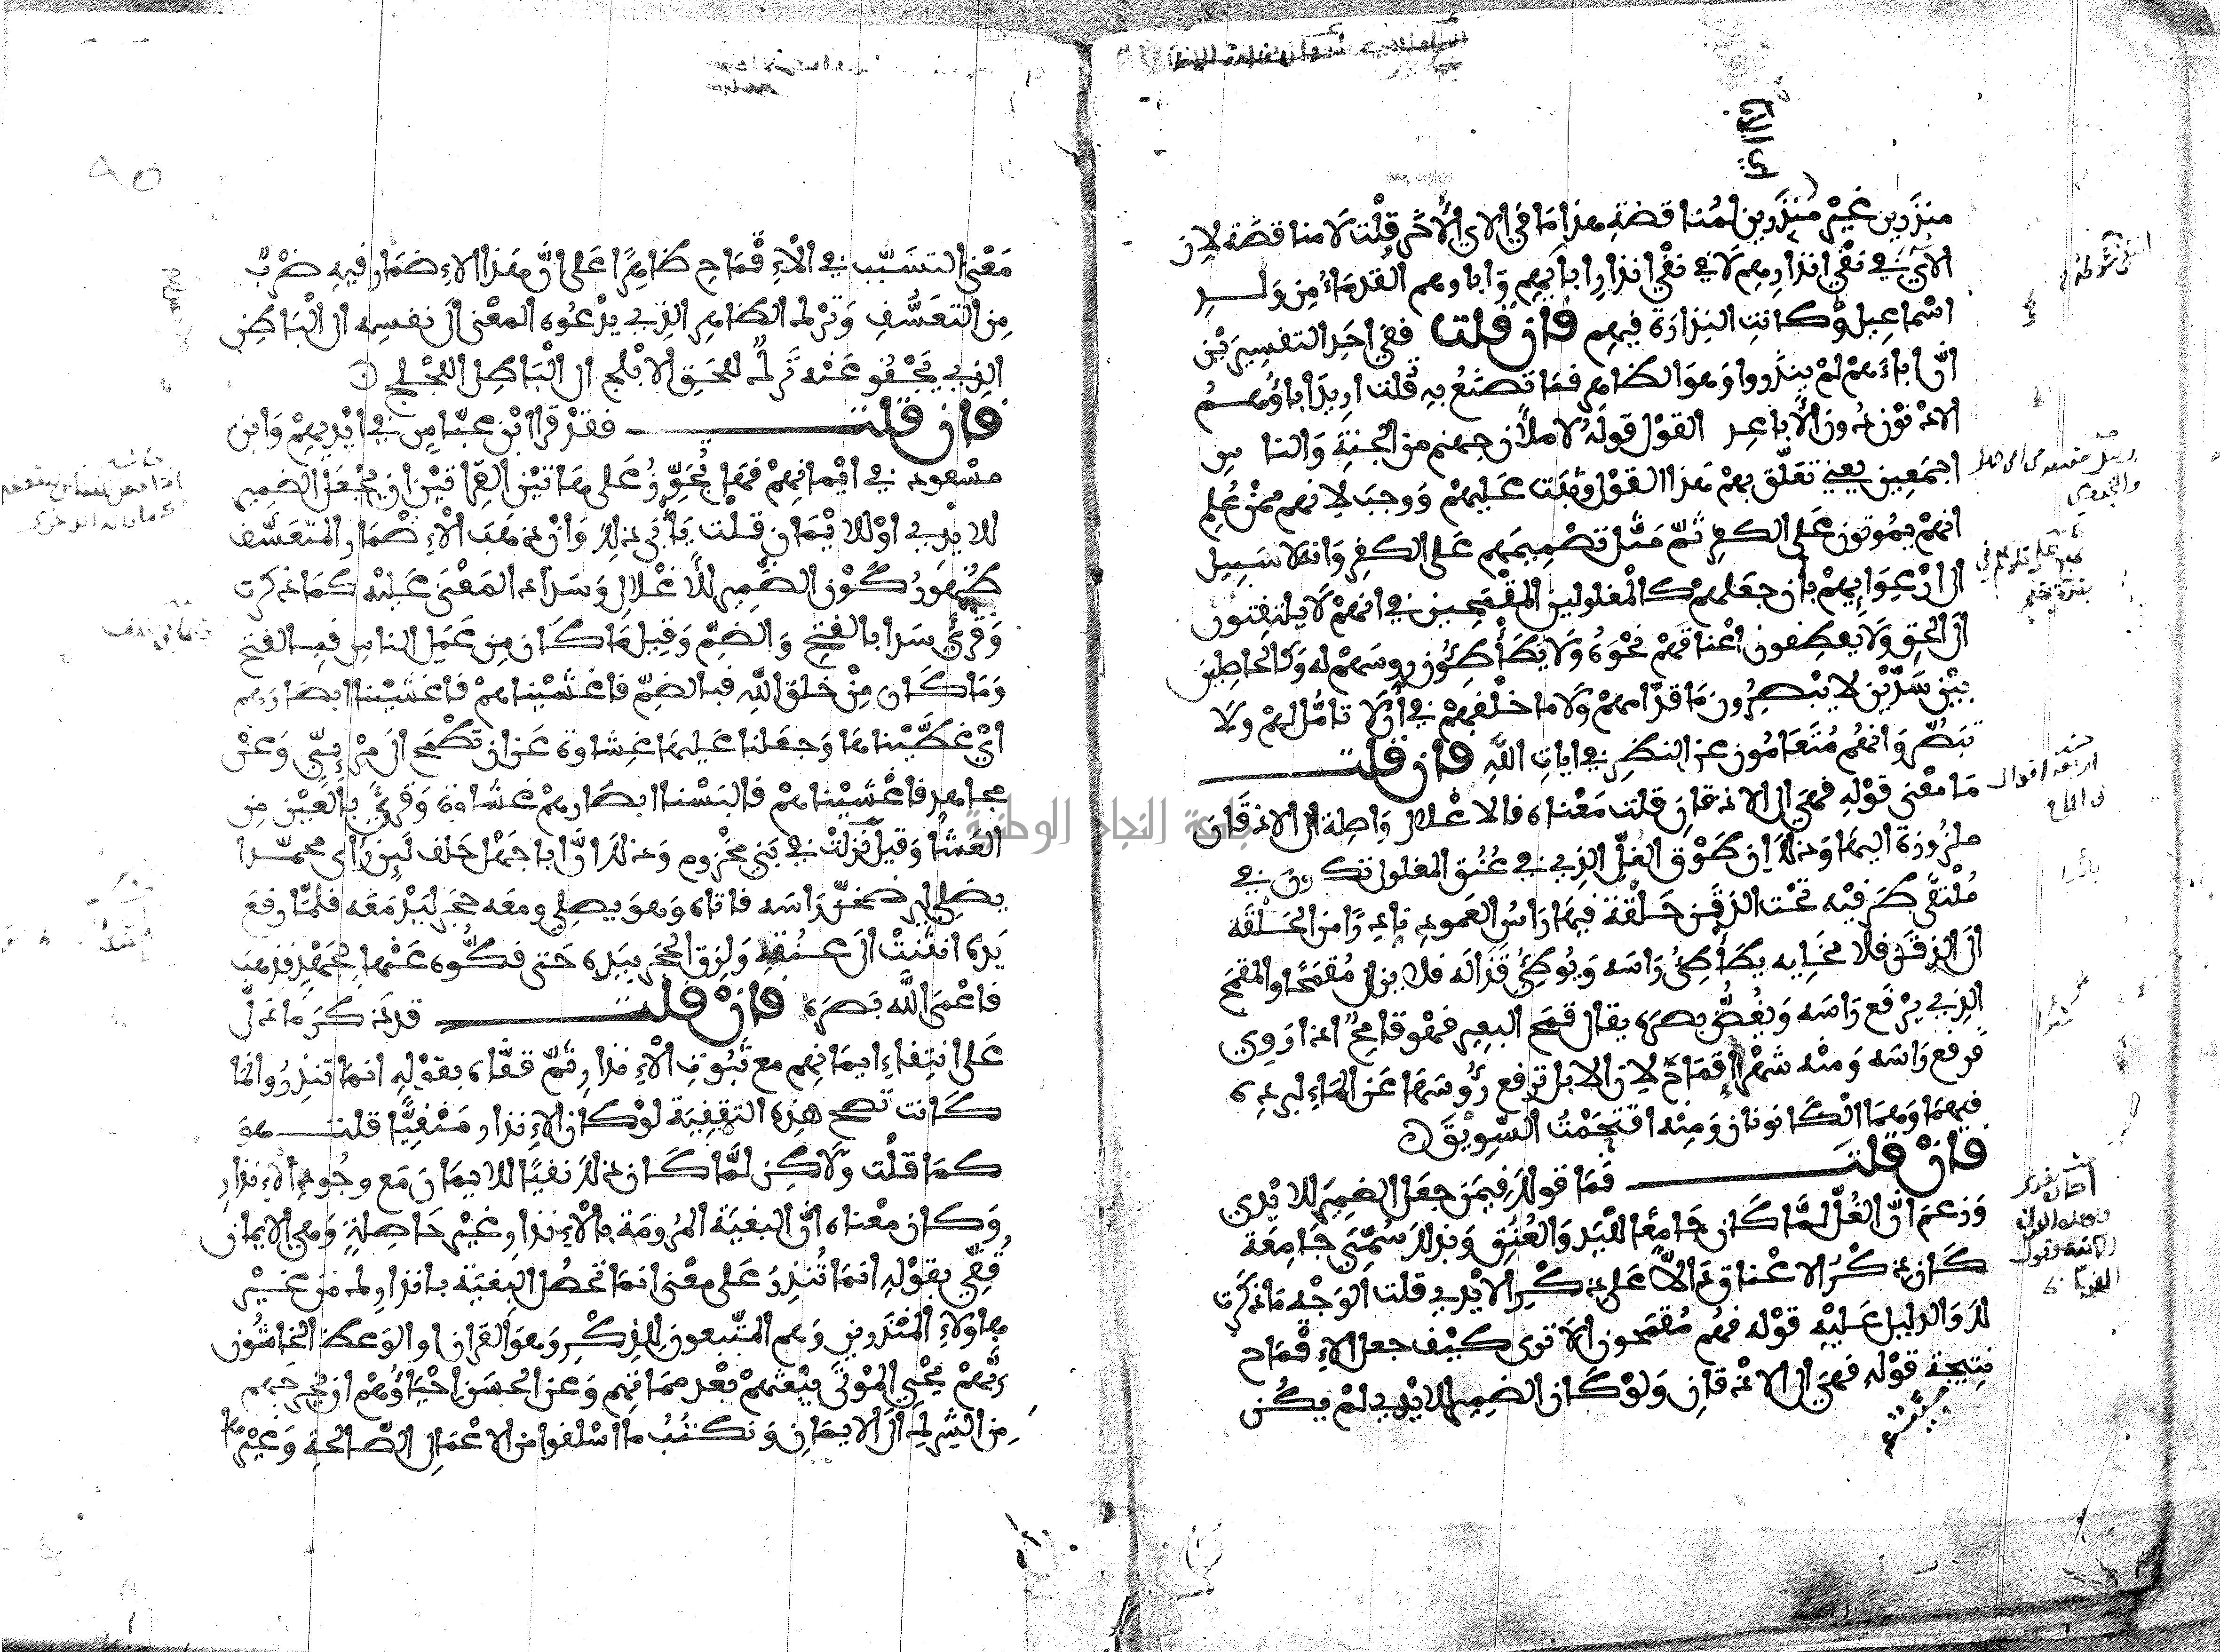 منذرين غير منذرين لمناقضة هذا ما في الاي الأخر قلت لا مناقضة لان
الآي في نفي انذارهم لا في نفي انذار ابايهم واباوهم القدماء من ولد
اسماعيل وكانت النذارة فيهم فان قلت ففي احد التفسيرين
ان اباءهم لم ينذروا وهو الظاهر فما تصنع به قلت اريد اباؤهم
الادنون دون الأباعد القول قوله لأملأن جهنم من الجنة والناس
اجمعين يعني تعلق بهم هذا القول وثبت عليهم ووجب لانهم ممن علم
انهم يموتون على الكفر ثم مثل تصميمهم على الكفر وانه لا سبيل
الى ارعوايهم بأن جعلهم كالمغلولين المقمحين في انهم لا يلتفتون
الى الحق ولا يعطفون اعناقهم نحوه ولا يطأطئون روسهم له وكالحاصلين
بين سدين لا يبصرون ما قدامهم ولا ما خلفهم في ألا تامل لهم ولا
تبصر وانهم متعامون عن النظر في ايات الله فان قلت
ما معنى قوله فهي الى الاذقان قلت معناه فالاغلال واصلة الى الاذقان
ملزوزة اليها وذلك ان طوق الغل الذي في عنق المغلول تكون في
ملتقى طرفيه تحت الذقن حلقة فيها راس العمود نادرا من الحلقة
الى الذقن فلا تخليه يطأطئ راسه ويوطئ قذاله فلا يزال مقمحا والمقمح
الذي يرفع راسه ويغض بصره يقال قمح البعير فهو قامح اذا روي
فرفع راسه ومنه شهرا قماح لان الابل ترفع رؤوسها عن الماء لبرده
فيهما وهما الكانونان ومنه اقتحمت السويق
فان قلت فما قولك فيمن جعل الضمير للايدي
وزعم ان الغل لما كان جامعا لليد والعنق وبذلك سمي جامعة
كان ذكر الاعناق دالا على ذكر الايدي قلت الوجه ما ذكرت
لك والدليل عليه قوله فهم مقمحون ألا ترى كيف جعل الاقماح
نتيجة قوله فهي الى الاذقان ولو كان الضمير للايدي لم يكن
معنى التسبب في الإقماح ظاهرا على ان هذا الإضمار فيه ضرب
من التعسف وترك الظاهر الذي يدعوه المعنى الى نفسه الى الباطن
الذي يجفو عنه ترك للحق الابلج الى الباطل اللجلج
فان قلت فقد قرا ابن عباس في ايديهم وابن
مسعود في ايمانهم فهل تجوز على هاتين القراتين ان يجعل الضمير
للايدي او للايمان قلت يأبى ذلك وان ذهب الإضمار المتعسف
ظهور كون الضمير للأغلال وسداد المعنى عليه كما ذكرت
وقرئ سدا بالفتح والضم وقيل ما كان من عمل الناس فبالفتح
وما كان من خلق الله فبالضم فاغشيناهم فاغشينا ابصارهم
اي غطيناها وجعلنا عليها غشاوة عن ان تطمح الى مرئي وعن
مجاهد فاغشيناهم فالبسنا ابصارهم غشاوة وقرئ بالعين من
العشا وقيل نزلت في بني مخزوم وذلك ان ابا جهل حلف لين راى محمدا
يصلي ليرضخن راسه فاتاه وهو يصلي ومعه حجر ليدمغه فلما رفع
يده انثنت الى عنقه ولزق الحجر بيده حتى فكوه عنها بجهد فذهب
فاعمى الله بصره فان قلت قد ذكر ما دل
على انتفاء ايمانهم مع ثبوت الإنذار ثم قفاه بقوله انما تنذر وانما
كانت تصح هذه التقفية لو كان الإنذار منفيا قلت هو
كما قلت ولاكن لما كان ذلك نفيا للايمان مع وجود الإنذار
وكان معناه ان البغية المرومة بالإنذار غير حاصلة وهي الايمان
قفي بقوله انما تنذر على معنى انما تحصل البغية بانذارك من غير
هاولاء المنذرين وهم المتبعون للذكر وهو القران او الوعظ الخاشون
ربهم نحيي الموتى نبعثهم بعد مماتهم وعن الحسن احياؤهم ان يخرجهم
من الشرك الى الايمان ونكتب ما اسلفوا من الاعمال الصالحة وغيرها